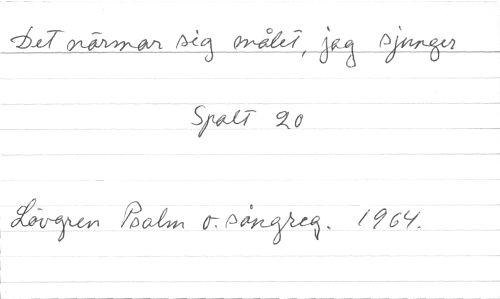 Det närmar sig målet, jag sjunger
Spalt 20
Lövgren Psalm o. sångreg. 1964.